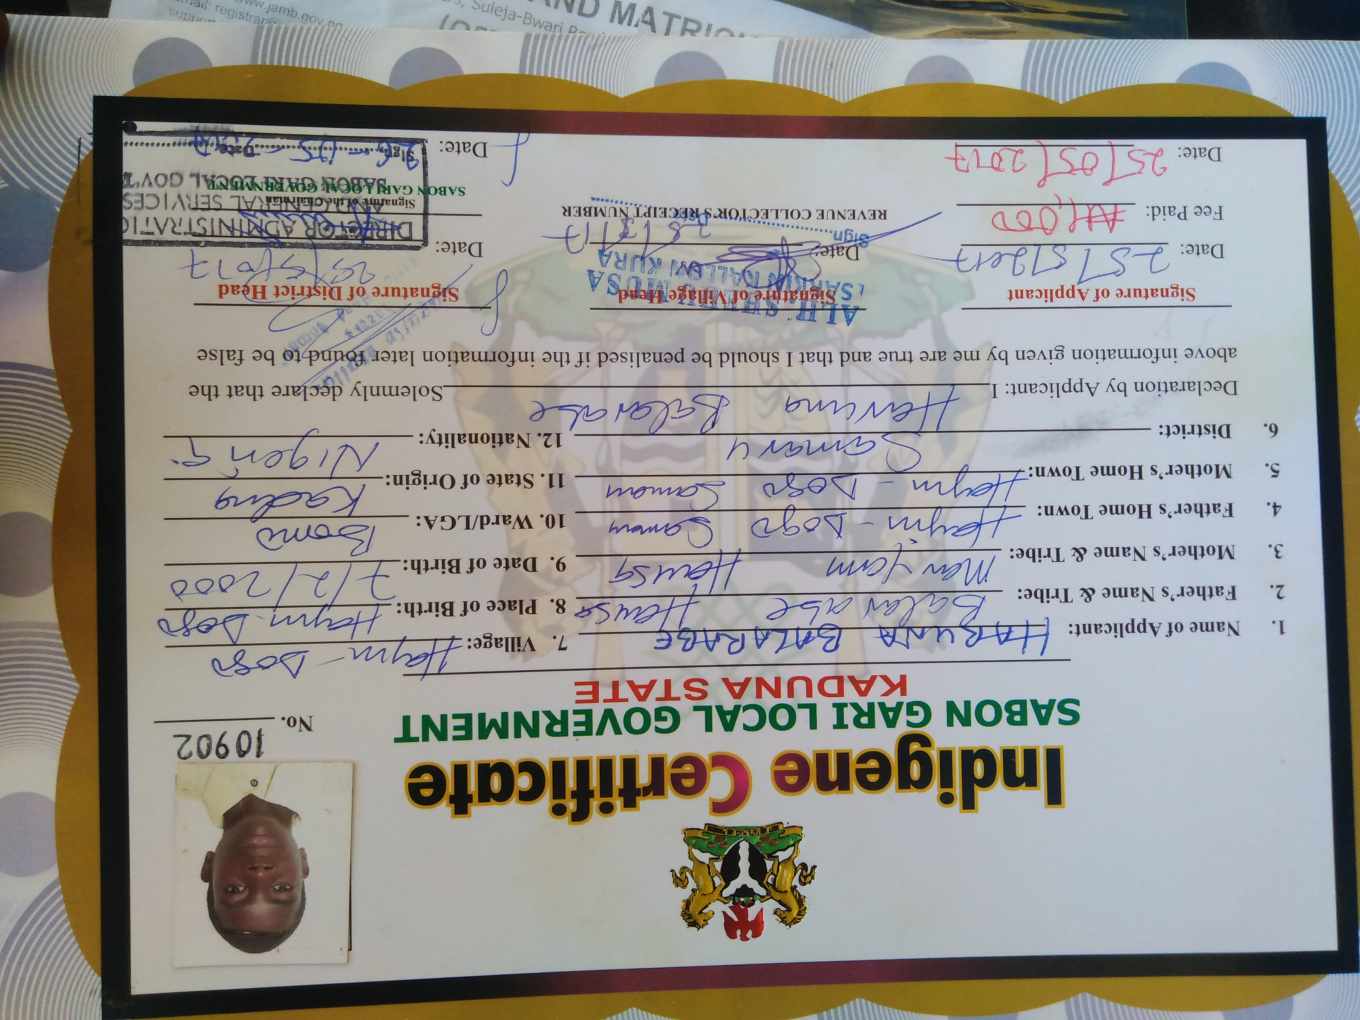 Indigene Certificate
SABON GARI LOCAL GOVERNMENT
KADUNA STATE
No. 10902
1. Name of Applicant: HARUNA BALARABE
2. Father's Name & Tribe: Balarabe Hausa
3. Mother's Name & Tribe: Maryam Hausa
4. Father's Home Town: Hayin-Dogo Samaru
5. Mother's Home Town: Hayin-Dogo Samaru
6. District: Samaru
7. Village: Hayin-Dogo
8. Place of Birth: Hayin-Dogo
9. Date of Birth: 7/2/2000
10. Ward/LGA: Bomo
11. State of Origin: Kaduna
12. Nationality: Nigeria
Declaration by Applicant: I Haruna Balarabe Solemnly declare that the
above information given by me are true and that I should be penalised if the information later found to be false
Signature of Applicant
Date: 25/5/2017
Fee Paid: ₦1,000
Date: 25/05/2017
Signature of Village Head
ALH. SHUAIBU MUSA
SARKIN KALLON KURA
Date:
Sign
REVENUE COLLECTOR'S RECEIPT NUMBER
Signature of District Head
Date: 25/5/2017
Signature of the Chairman
SABON GARI LOCAL GOVERNMENT
Date:
DIRECTOR ADMINISTRATION
AND GENERAL SERVICES
SABON GARI LOCAL GOV'T
Sign Date
26-05-2017
www.jamb.gov.ng
Suleja-Bwari
AND